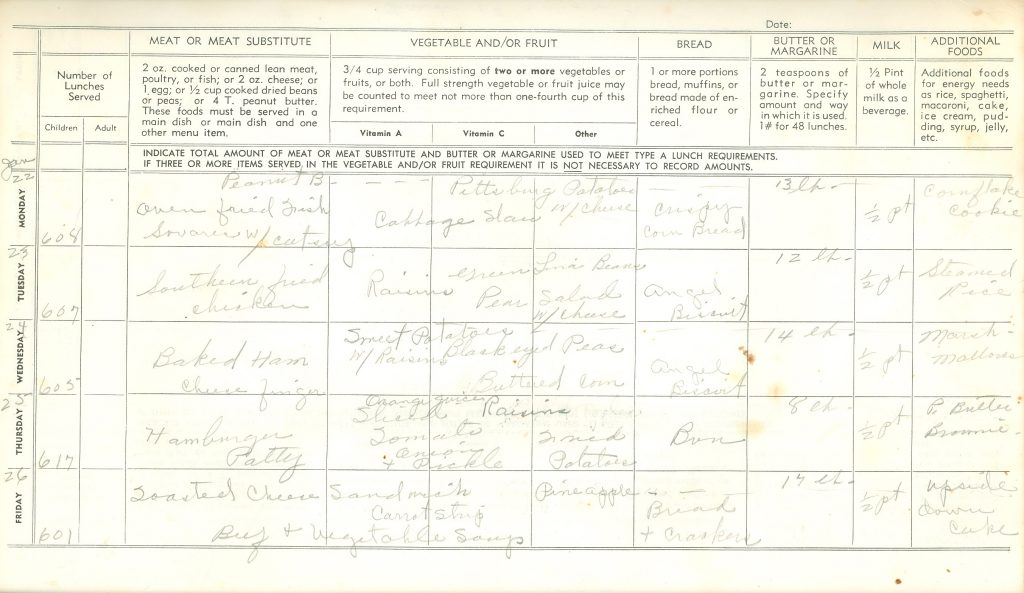 Date:
MEAT OR MEAT SUBSTITUTE
VEGETABLE AND/OR FRUIT
BREAD
BUTTER OR MARGARINE
MILK
ADDITIONAL FOODS
Number of
Lunches
Served
2 oz. cooked or canned lean meat,
poultry, or fish; or 2 oz. cheese; or
1 egg; or ½ cup cooked dried beans
or peas; or 4 T. peanut butter.
These foods must be served in a
main dish or main dish and one
other menu item.
3/4 cup serving consisting of two or more vegetables or
fruits, or both. Full strength vegetable or fruit juice may
be counted to meet not more than one-fourth cup of this
requirement.
1 or more portions
bread, muffins, or
bread made of en-
riched flour or
cereal.
2 teaspoons of
butter or mar-
garine. Specify
amount and way
in which it is used.
1# for 48 lunches.
½ Pint
of whole
milk as a
beverage.
Additional foods
for energy needs
as rice, spaghetti,
macaroni, cake,
ice cream, pud-
ding, syrup, jelly,
etc.
Children
Adult
Vitamin A
Vitamin C
Other
INDICATE TOTAL AMOUNT OF MEAT OR MEAT SUBSTITUTE AND BUTTER OR MARGARINE USED TO MEET TYPE A LUNCH REQUIREMENTS.
IF THREE OR MORE ITEMS SERVED, IN THE VEGETABLE AND/OR FRUIT REQUIREMENT IT IS NOT NECESSARY TO RECORD AMOUNTS.
Jan
22
MONDAY
608
Peanut B - - - -
Oven fried Fish
Squares w/ catsup
Cabbage Slaw
Pittsburg Potatoes
w/ cheese
- -
Crispy
Corn Bread
13 lb -
½ pt
Cornflake
Cookie
23
TUESDAY
607
Southern fried
chicken
Raisins
Green Lima Beans
Pear Salad
w/ cheese
Angel
Biscuit
12 lb -
½ pt
Steamed
Rice
24
WEDNESDAY
605
Baked Ham
Cheese finger
Sweet Potatoes
w/ Raisins
Blackeyed Peas
Buttered Corn
Angel
Biscuit
14 lb -
½ pt
Marsh-
mallows
25
THURSDAY
617
Hamburger
Patty
Orange juice
Sliced
Tomato
Onion
+ Pickle
Raisins
Fried
Potatoes
Bun
8 lb -
½ pt
P. Butter
Brownie
26
FRIDAY
601
Toasted Cheese Sandwich
Carrot Strip
Beef + Vegetable Soup
Pineapple - -
Bread
+ Crackers
lb -
½ pt
upside
down
cake